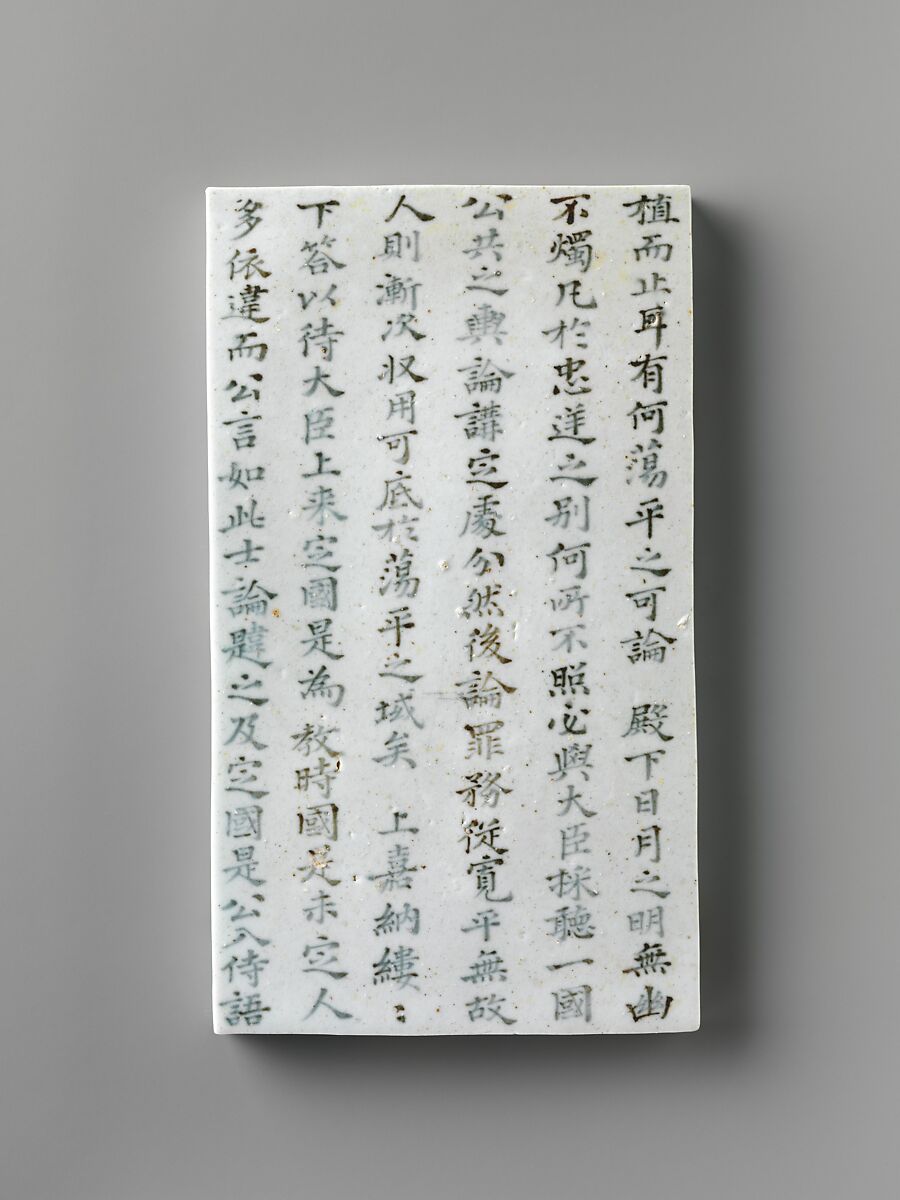 植而止耳有何蕩平之可論　殿下日月之明無幽
不燭凡於忠逆之别何所不照必與大臣採聽一國
公共之輿論講定處分然後論罪務從寬平無故
人則漸次収用可底於蕩平之域矣　上嘉納縷〻
下答以待大臣上来定國是為教時國是未定人
多依違而公言如此士論韙之及定國是公入侍語